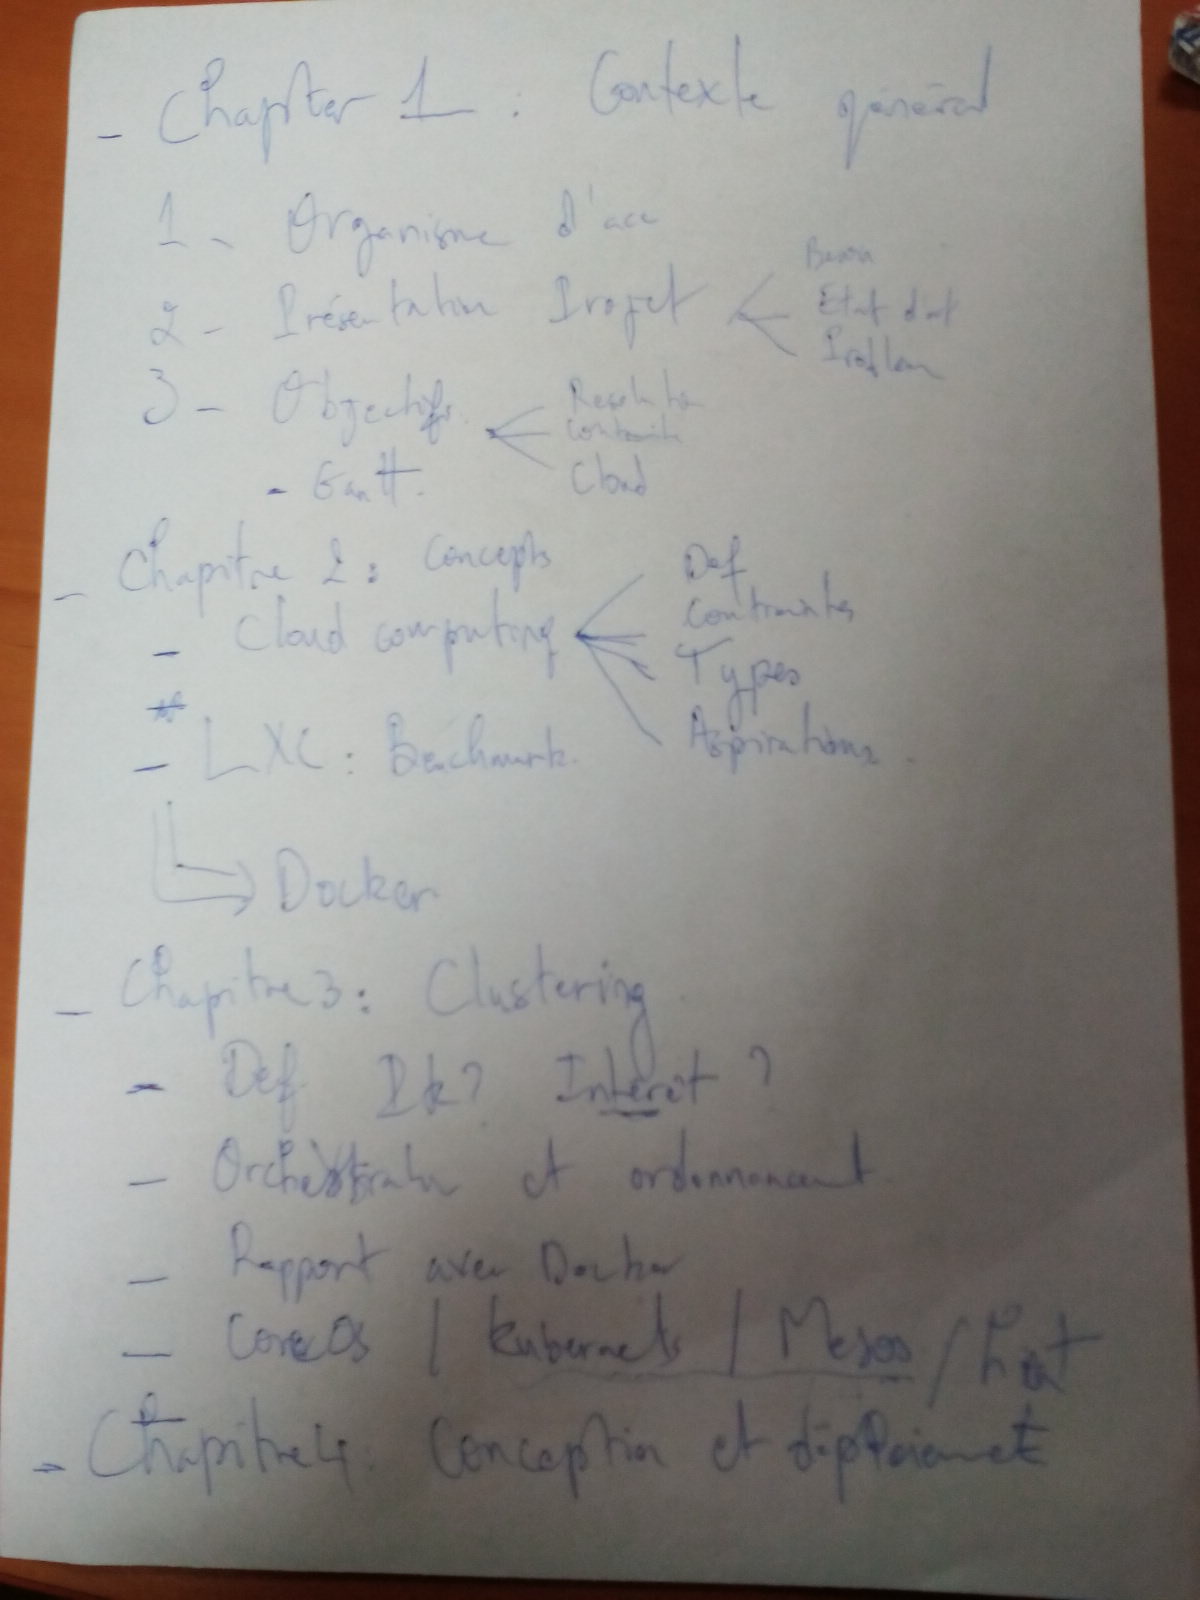 - Chapiter 1 : Contexte général
1 - Organisme d'acc
2 - Présentation Projet
Besoin
Etat d'art
Problem
3 - Objectifs
Resolution
Contrainte
Cloud
- Gantt.
- Chapitre 2 : Concepts
- Cloud computing
Def
Contraintes
Types
Aspirations.
- LXC : Bechmark.
Docker
- Chapitre 3 : Clustering
- Def Pk? Intérêt ?
- Orchéstration et ordonnancent
- Rapport avec Docker
- CoreOS / Kubernets / Mesos /
- Chapitre 4 : Conception et déploiement